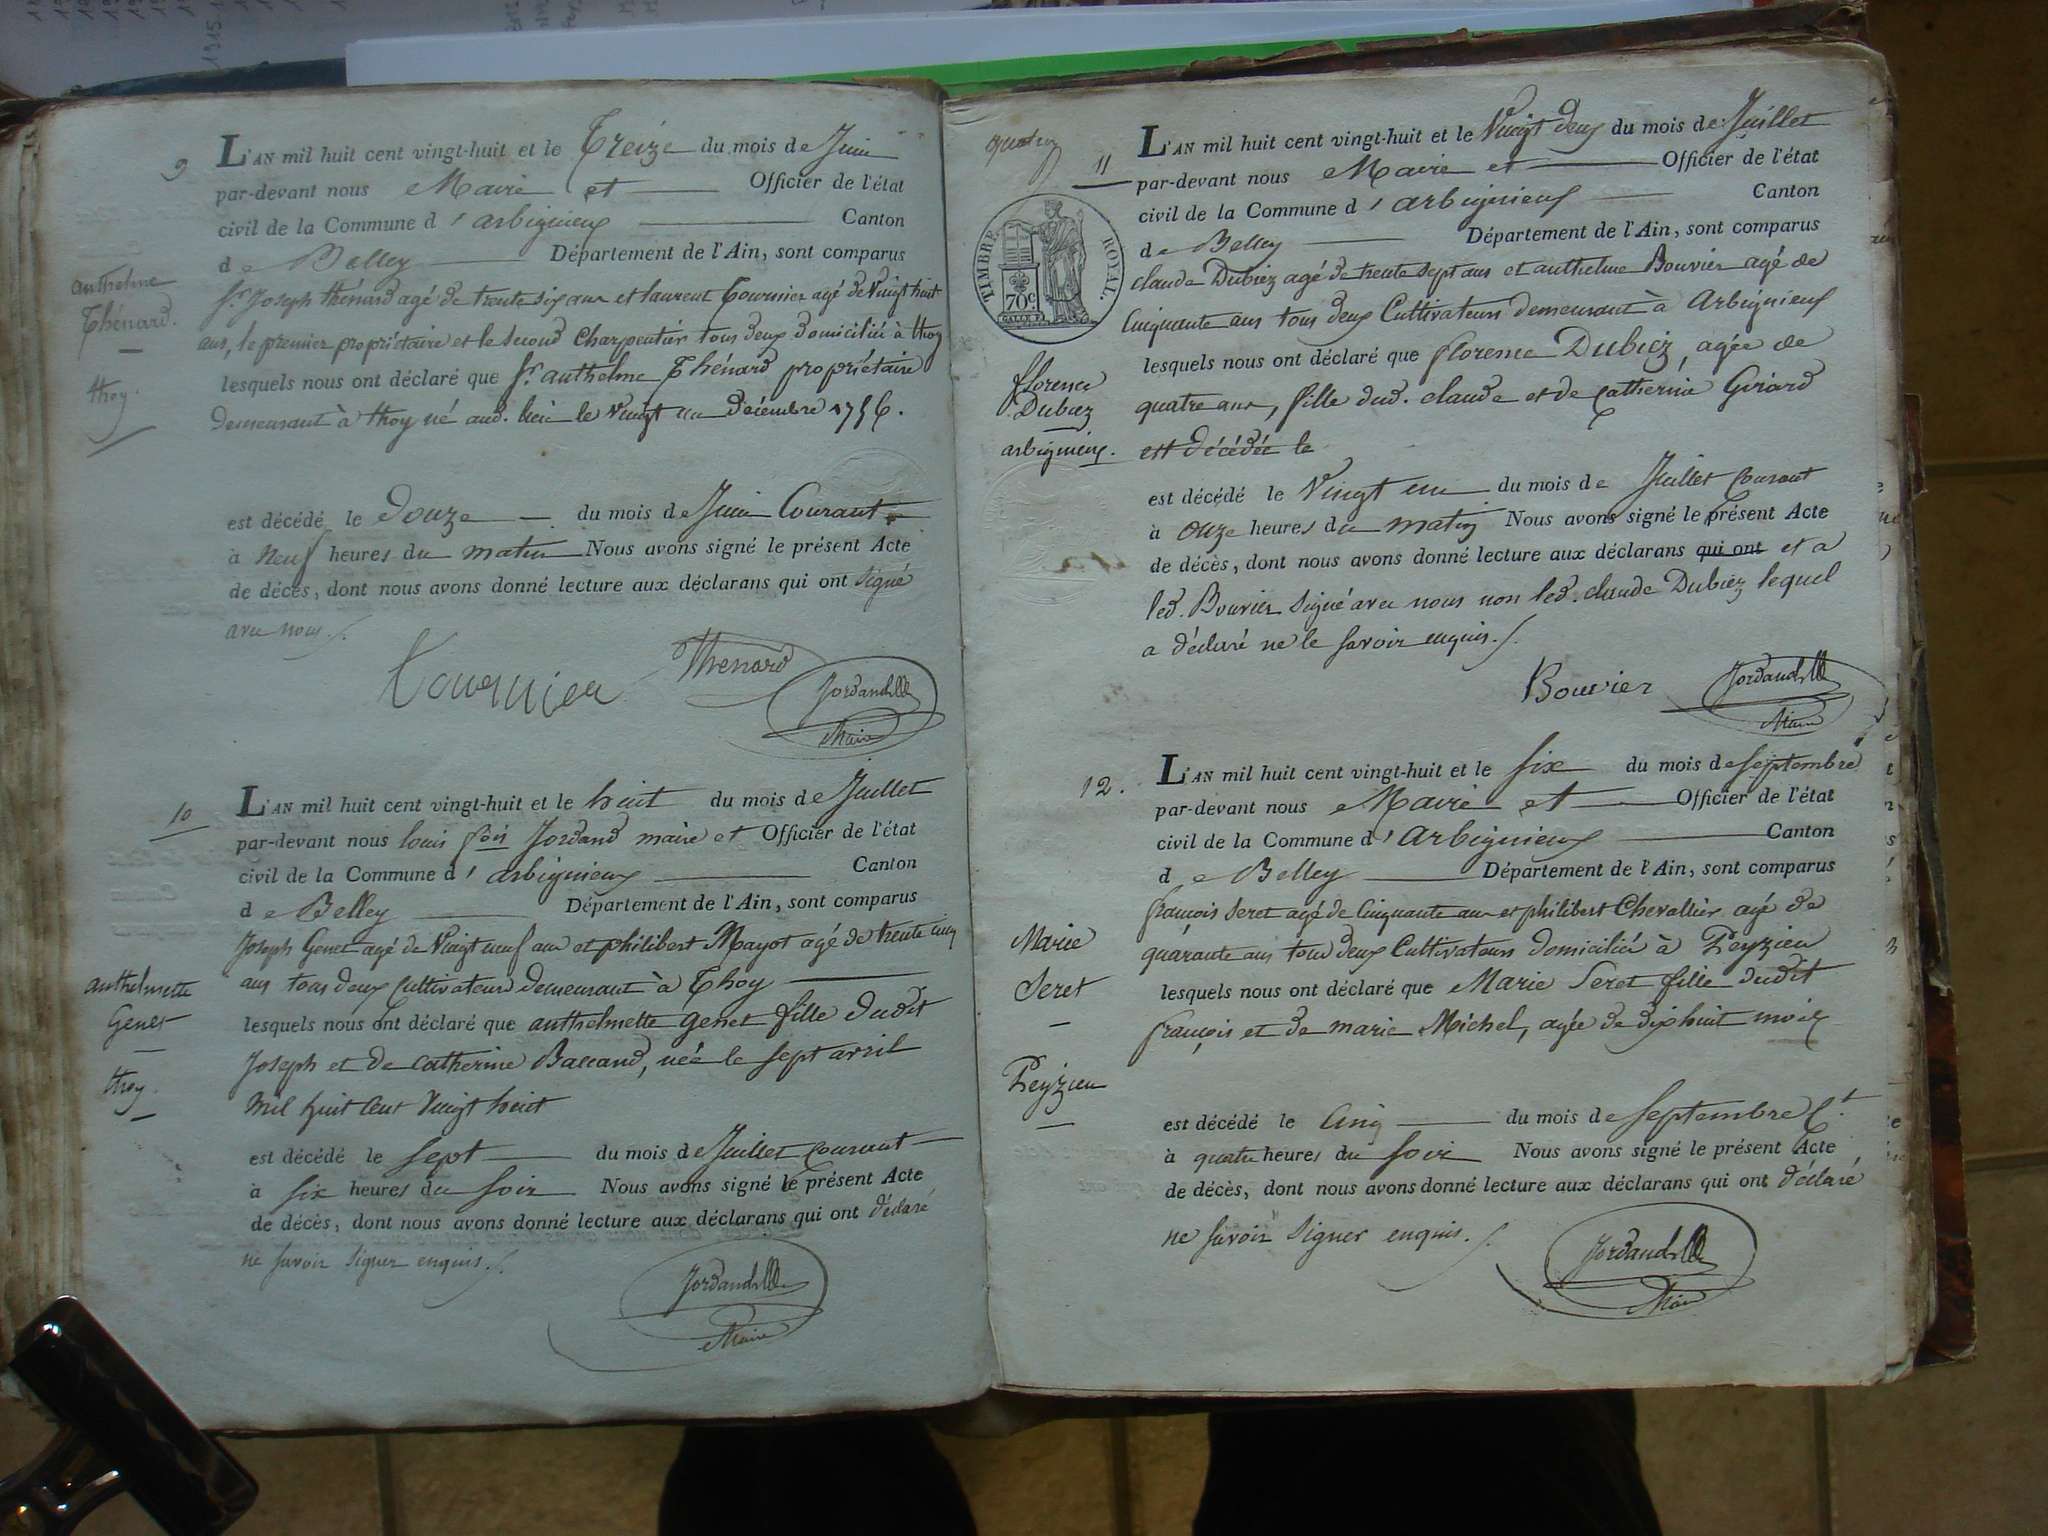 9
L'AN mil huit cent vingt-huit et le Treize du mois de Juin
par-devant nous Maire et Officier de l'état
civil de la Commune d'arbignieux Canton
de Belley Département de l'Ain, sont comparus
Sr. Joseph thénard agé de trente six ans et laurent Tournier agé de Vingt huit
ans, le premier propriétaire et le second Charpentier tous deux domicilié à thoy
lesquels nous ont déclaré que Sr. anthelme Thénard propriétaire
demeurant à thoy né aud. lieu le vingt un Décembre 1756.
anthelme
Thénard.
thoy.
est décédé le Douze du mois de Juin Courant
à Neuf heures du matin Nous avons signé le présent Acte
de décès, dont nous avons donné lecture aux déclarans qui ont signé
avec nous.
Tournier Thenard
Jordand
Maire
10
L'AN mil huit cent vingt-huit et le huit du mois de Juillet
par-devant nous louis fois Jordand maire et Officier de l'état
civil de la Commune d'arbignieux Canton
de Belley Département de l'Ain, sont comparus
Joseph Genet agé de Vingt neuf ans et philibert Mayot agé de trente cinq
ans tous deux Cultivateurs demeurant à Thoy
lesquels nous ont déclaré que anthelmette genet fille dudit
Joseph et de catherine Baccand, née le sept avril
mil huit cent vingt huit
anthelmette
Genet
thoy.
est décédé le sept du mois de Juillet courant
à six heures du soir Nous avons signé le présent Acte
de décès, dont nous avons donné lecture aux déclarans qui ont déclaré
ne savoir signer enquis.
Jordand
Maire
11
L'AN mil huit cent vingt-huit et le Vingt deux du mois de Juillet
par-devant nous Maire et Officier de l'état
civil de la Commune d'arbignieux Canton
de Belley Département de l'Ain, sont comparus
TIMBRE ROYAL.
70c
claude Dubiez agé de trente sept ans et anthelme Bouvier agé de
Cinquante ans tous deux Cultivateurs demeurant à Arbignieux
lesquels nous ont déclaré que florence Dubiez, agée de
quatre ans, fille dud. claude et de Catherine Goriard
est décédée le
florence
Dubiez
arbignieux.
est décédé le Vingt un du mois de Juillet courant
à onze heures du matin Nous avons signé le présent Acte
de décès, dont nous avons donné lecture aux déclarans qui ont et a
led. Bouvier signé avec nous non led. claude Dubiez lequel
a déclaré ne le savoir enquis.
Bouvier Jordand
Maire
12.
L'AN mil huit cent vingt-huit et le six du mois de septembre
par-devant nous Maire et Officier de l'état
civil de la Commune d'Arbignieux Canton
de Belley Département de l'Ain, sont comparus
françois Seret agé de Cinquante ans et philibert Chevallier agé de
quarante ans tous deux Cultivateurs domicilié à Peyzieu
lesquels nous ont déclaré que Marie Seret fille dudit
françois et de marie Michel, agée de dix huit mois
Marie
Seret
Peyzieu
est décédé le Cinq du mois de septembre Ct.
à quatre heures du soir Nous avons signé le présent Acte
de décès, dont nous avons donné lecture aux déclarans qui ont déclaré
ne savoir signer enquis.
Jordand
Maire